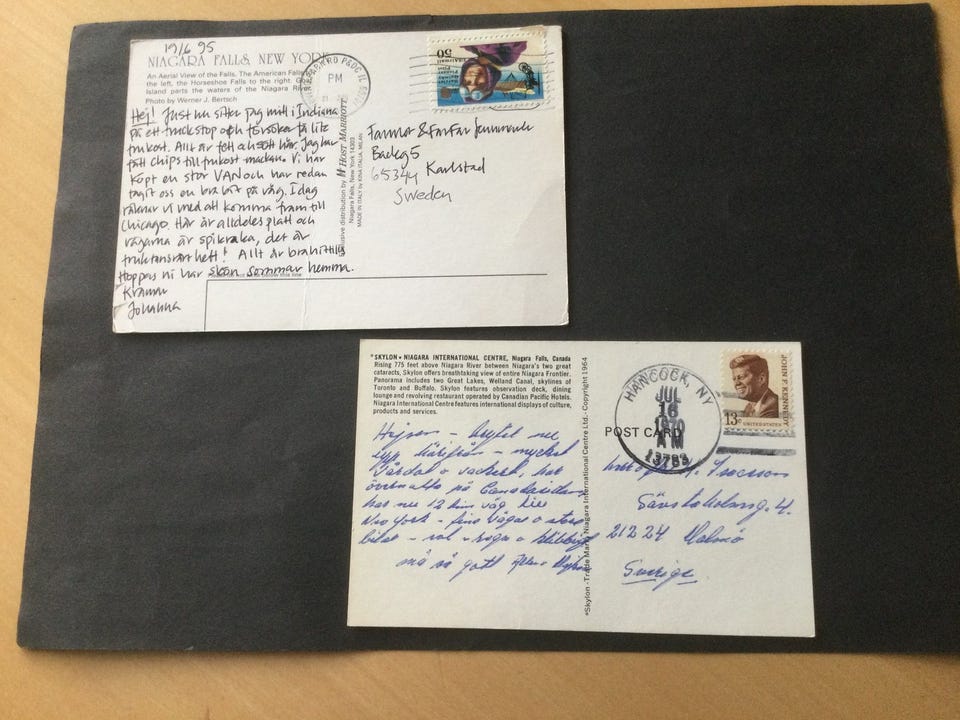 19/6 95
NIAGARA FALLS, NEW YORK
An Aerial View of the Falls. The American Falls
the left, the Horseshoe Falls to the right.
Island parts the waters of the Niagara River.
Photo by Werner J. Bertsch
Hej! Just nu sitter jag mitt i Indiana
på ett truckstop och försöker få lite
frukost. Allt är fett och sött här. Jag har
fått chips till frukost mackan. Vi har
köpt en stor VAN och har redan
tagit oss en bra bit på väg. Idag
räknar vi med att komma fram till
Chicago. Här är alldeles platt och
vägarna är spikraka, det är
fruktansvärt hett! Allt är bra hittills
Hoppas ni har skön sommar hemma.
Kramar
Johanna
exclusive distribution by HOST MARRIOTT
Niagara Falls, New York 14303
MADE IN ITALY by KINA ITALIA, MILAN
PM
50
Farmor & Farfar
Badeg 5
65344 Karlstad
Sweden
*SKYLON • NIAGARA INTERNATIONAL CENTRE, Niagara Falls, Canada
Rising 775 feet above Niagara River between Niagara's two great
cataracts, Skylon offers breathtaking view of entire Niagara Frontier.
Panorama includes two Great Lakes, Welland Canal, skylines of
Toronto and Buffalo. Skylon features observation deck, dining
lounge and revolving restaurant operated by Canadian Pacific Hotels.
Niagara International Centre features international displays of culture,
products and services.
Hejsan -
härifrån - mycket
o vackert, har
övernatta på Canadasidan
har nu 12 tim väg till
New York - fina vägar o stora
bilar - sol - regn o
må så gott
*Skylon - Trade Mark Niagara International Centre Ltd. - Copyright 1964
HANCOCK, NY
JUL
16
1970
AM
13783
POST CARD
JOHN F. KENNEDY
13c UNITED STATES
21224 Malmö
Sverige